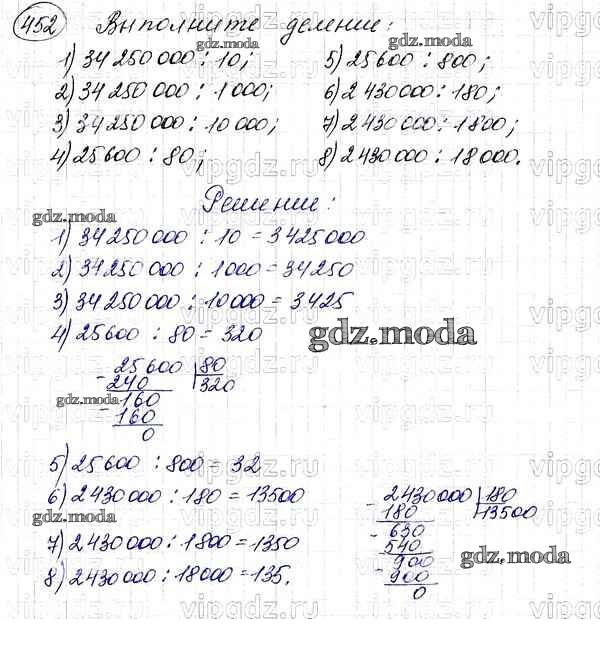 452 Выполните деление:
1) 34 250 000 : 10; 5) 25 600 : 800;
2) 34 250 000 : 1 000; 6) 2 430 000 : 180;
3) 34 250 000 : 10 000; 7) 2 430 000 : 1800;
4) 25 600 : 80; 8) 2 430 000 : 18 000.
Решение:
1) 34 250 000 : 10 = 3 425 000
2) 34 250 000 : 1000 = 34 250
3) 34 250 000 : 10 000 = 3425
4) 25 600 : 80 = 320
25 600 | 80
- 240 | 320
160
- 160
0
5) 25 600 : 800 = 32
6) 2 430 000 : 180 = 13500
7) 2 430 000 : 1800 = 1350
8) 2 430 000 : 18 000 = 135.
2430000 | 180
- 180 | 13500
- 630
540
- 900
900
0
gdz.moda
gdz.moda
gdz.moda
gdz.moda
gdz.moda
gdz.moda
gdz.moda
vipgdz.ru